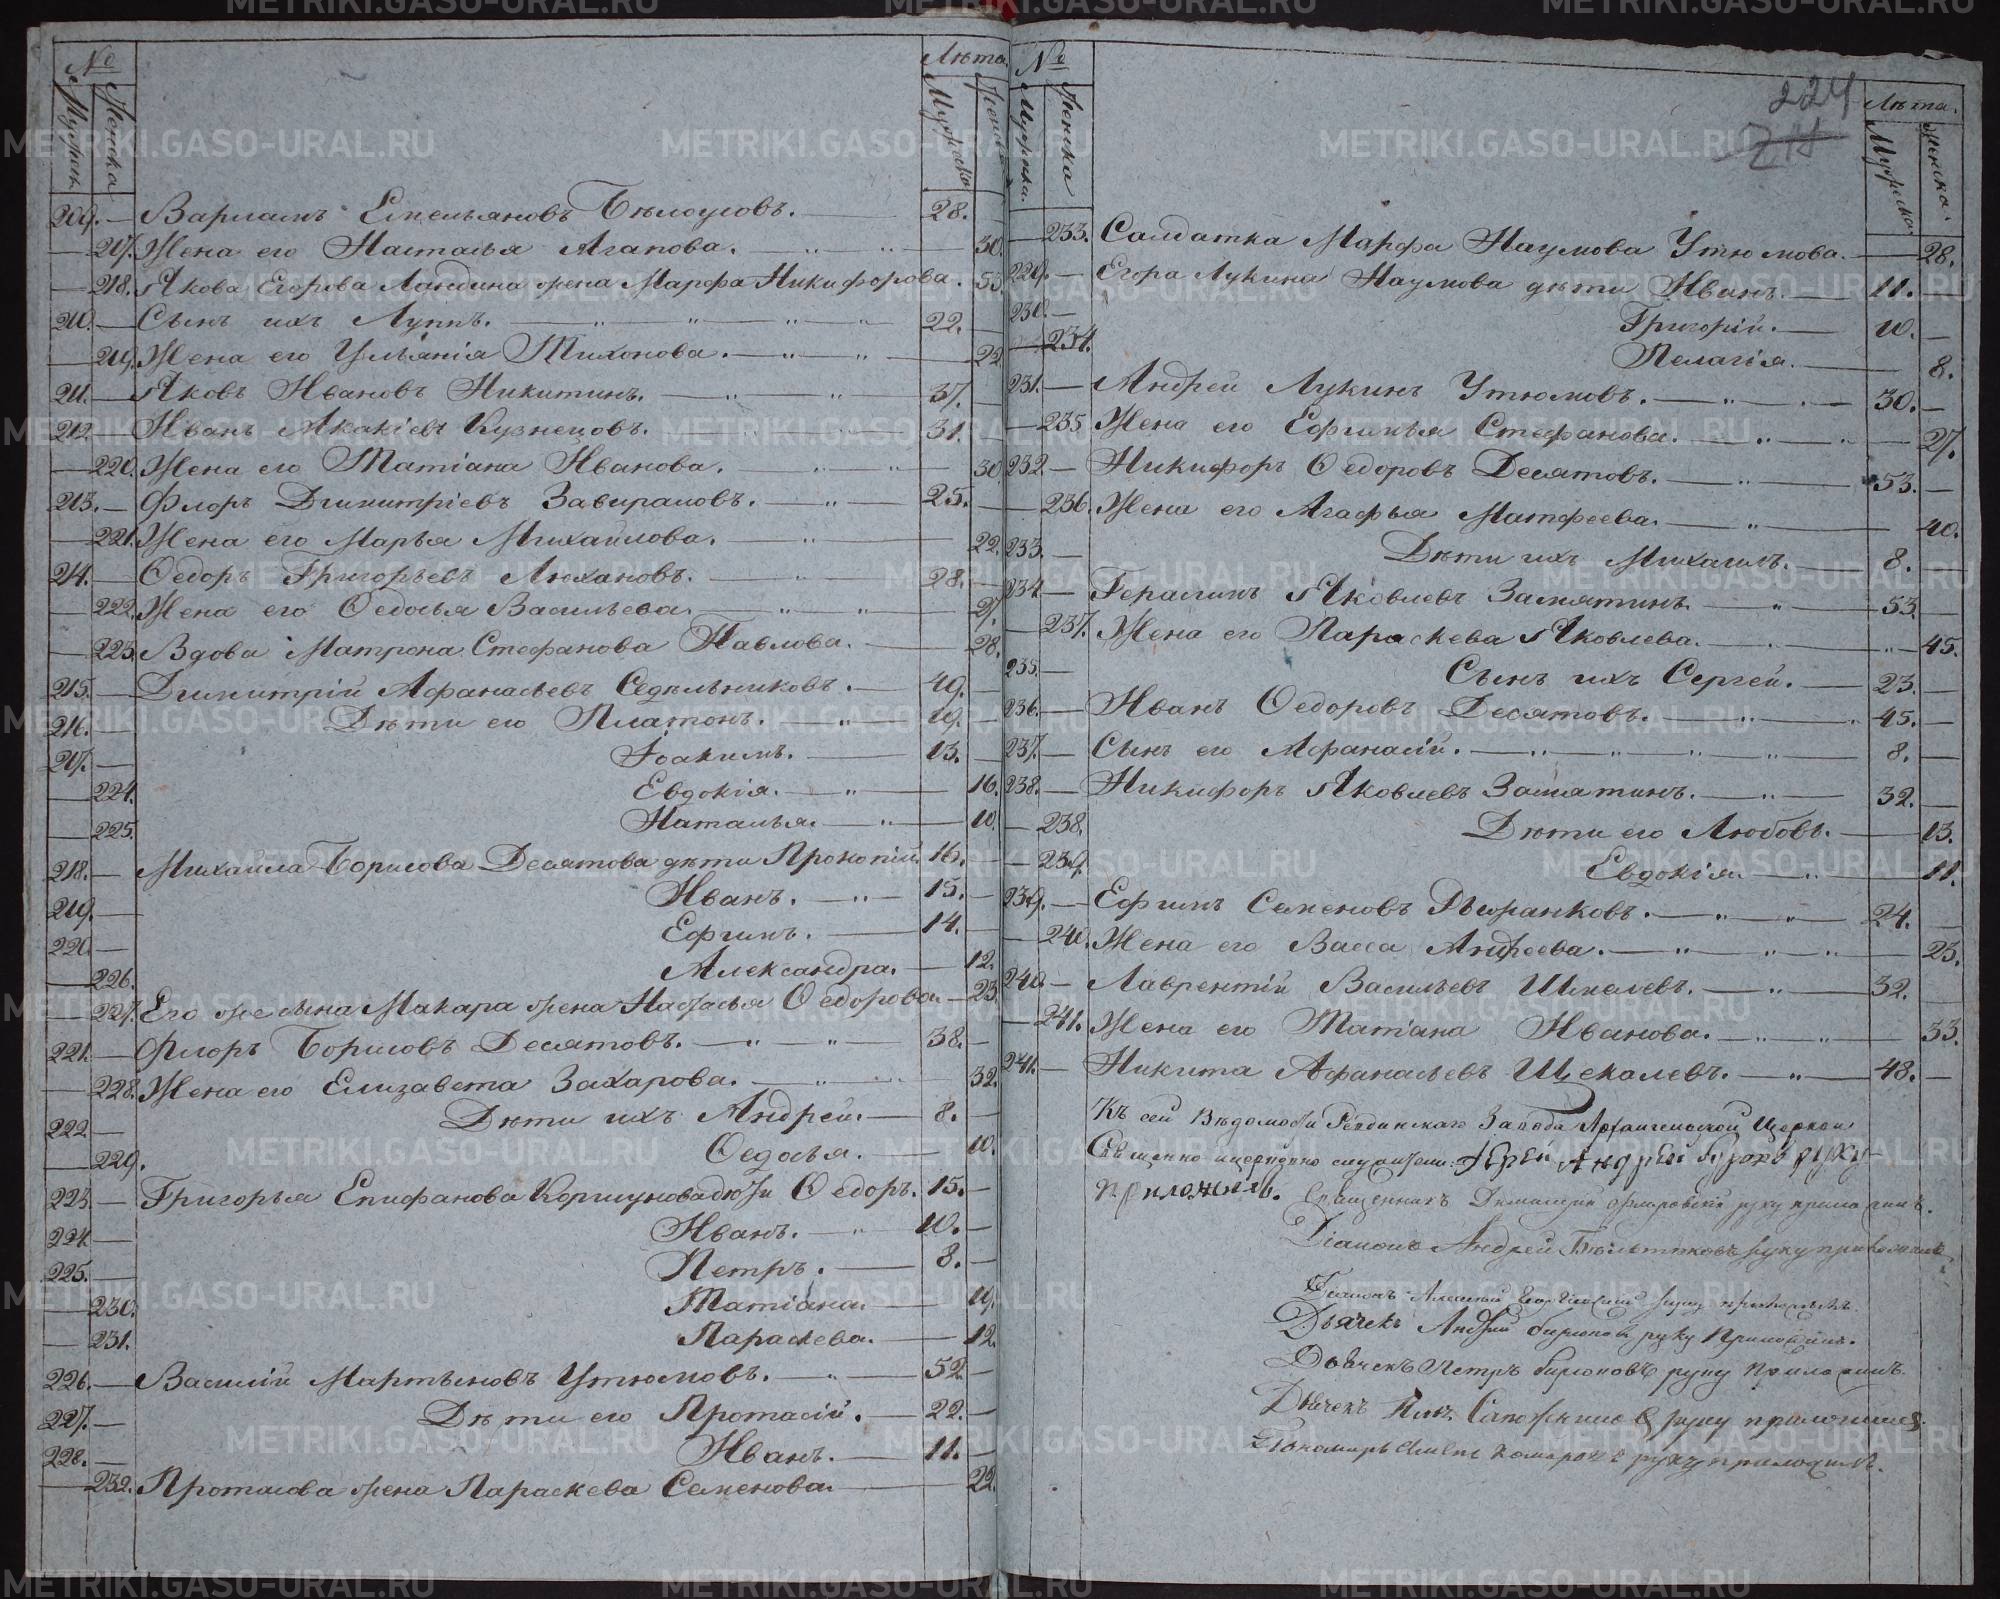 № Лѣта.
Мужеска Женска Мужеска Женска
209. Варламъ Емельяновъ Бѣлоусовъ. 28.
217. Жена его Настасья Агапова. 30.
218. Якова Егорова Ландина жена Марфа Никифорова. 53.
210. Сынъ ихъ Луппъ. 22.
219. Жена его Ульянія Тихонова. 22
211. Яковъ Ивановъ Никитинъ. 37.
212. Иванъ Акакіевъ Кузнецовъ. 31.
220. Жена его Татіана Иванова. 30
213. Флоръ Димитріевъ Завираловъ. 25.
221. Жена его Марья Михайлова. 22.
214. Ѳедоръ Григорьевъ Люхановъ. 28.
222. Жена его Ѳедосья Васильева. 27.
223. Вдова Матрона Стефанова Павлова. 28.
215. Димитрій Афанасьевъ Седѣльниковъ. 49.
216. Дѣти его Платонъ. 19.
217. Іоакимъ. 13.
224. Евдокія. 16.
225. Наталья. 10.
218. Михайла Борисова Десятова дѣти Прокопій. 16.
219. Иванъ. 15.
220. Ефимъ. 14.
226. Александра. 12.
227. Его же сына Макара жена Настасья Ѳедорова. 23.
221. Флоръ Борисовъ Десятовъ. 38.
228. Жена его Елизавета Захарова. 32.
222. Дѣти ихъ Андрей. 8.
229. Ѳедосья. 10.
223. Григорья Епифанова Коршунова дѣти Ѳедоръ. 15.
224. Иванъ. 10.
225. Петръ. 8.
230. Татіана. 19.
231. Параскева. 12.
226. Василій Мартыновъ Утюмовъ. 52.
227. Дѣти его Протасій. 22.
228. Иванъ. 11.
232. Протасова жена Параскева Семенова. 22.
224
211
№ Лѣта.
Мужеска Женска Мужеска Женска.
233. Салдатка Марфа Наумова Утюмова. 28.
229. Егора Лукина Наумова дѣти Иванъ. 11.
230. Григорій. 10.
234. Пелагія. 8.
231. Андрей Лукинъ Утюмовъ. 30.
235 Жена его Ефимья Стефанова. 27.
232. Никифоръ Ѳедоровъ Десятовъ. 53.
236. Жена его Агафья Матфеева. 40.
233. Дѣти ихъ Михаилъ. 8.
234. Герасимъ Яковлевъ Замятинъ. 53.
237. Жена его Параскева Яковлева. 45.
235. Сынъ ихъ Сергей. 23.
236. Иванъ Ѳедоровъ Десятовъ. 45.
237. Сынъ его Афанасій. 8.
238. Никифоръ Яковлевъ Замятинъ. 32.
238. Дѣти его Любовь. 13.
239. Евдокія. 11.
239. Ефимъ Семеновъ 24.
240. Жена его Васса Андреева. 25.
240. Лаврентій Васильевъ Шмелевъ. 32.
241. Жена его Татіана Иванова. 33.
241. Никита Афанасьевъ Щекалевъ. 48.
Къ сей Вѣдомости Ревдинскаго Завода Архангельской Церкви
Священно и церковно служители: Іерей Андрей руку
приложилъ. Священникъ руку приложилъ.
Діаконъ Андрей руку приложилъ
Діаконъ Алексій руку приложилъ.
Дьячекъ Андрей Бирюковъ руку приложилъ.
Дьячекъ Петръ Бирюковъ руку приложилъ.
Дьячекъ Сапожниковъ руку приложилъ.
Пономарь руку приложилъ.
METRIKI.GASO-URAL.RU